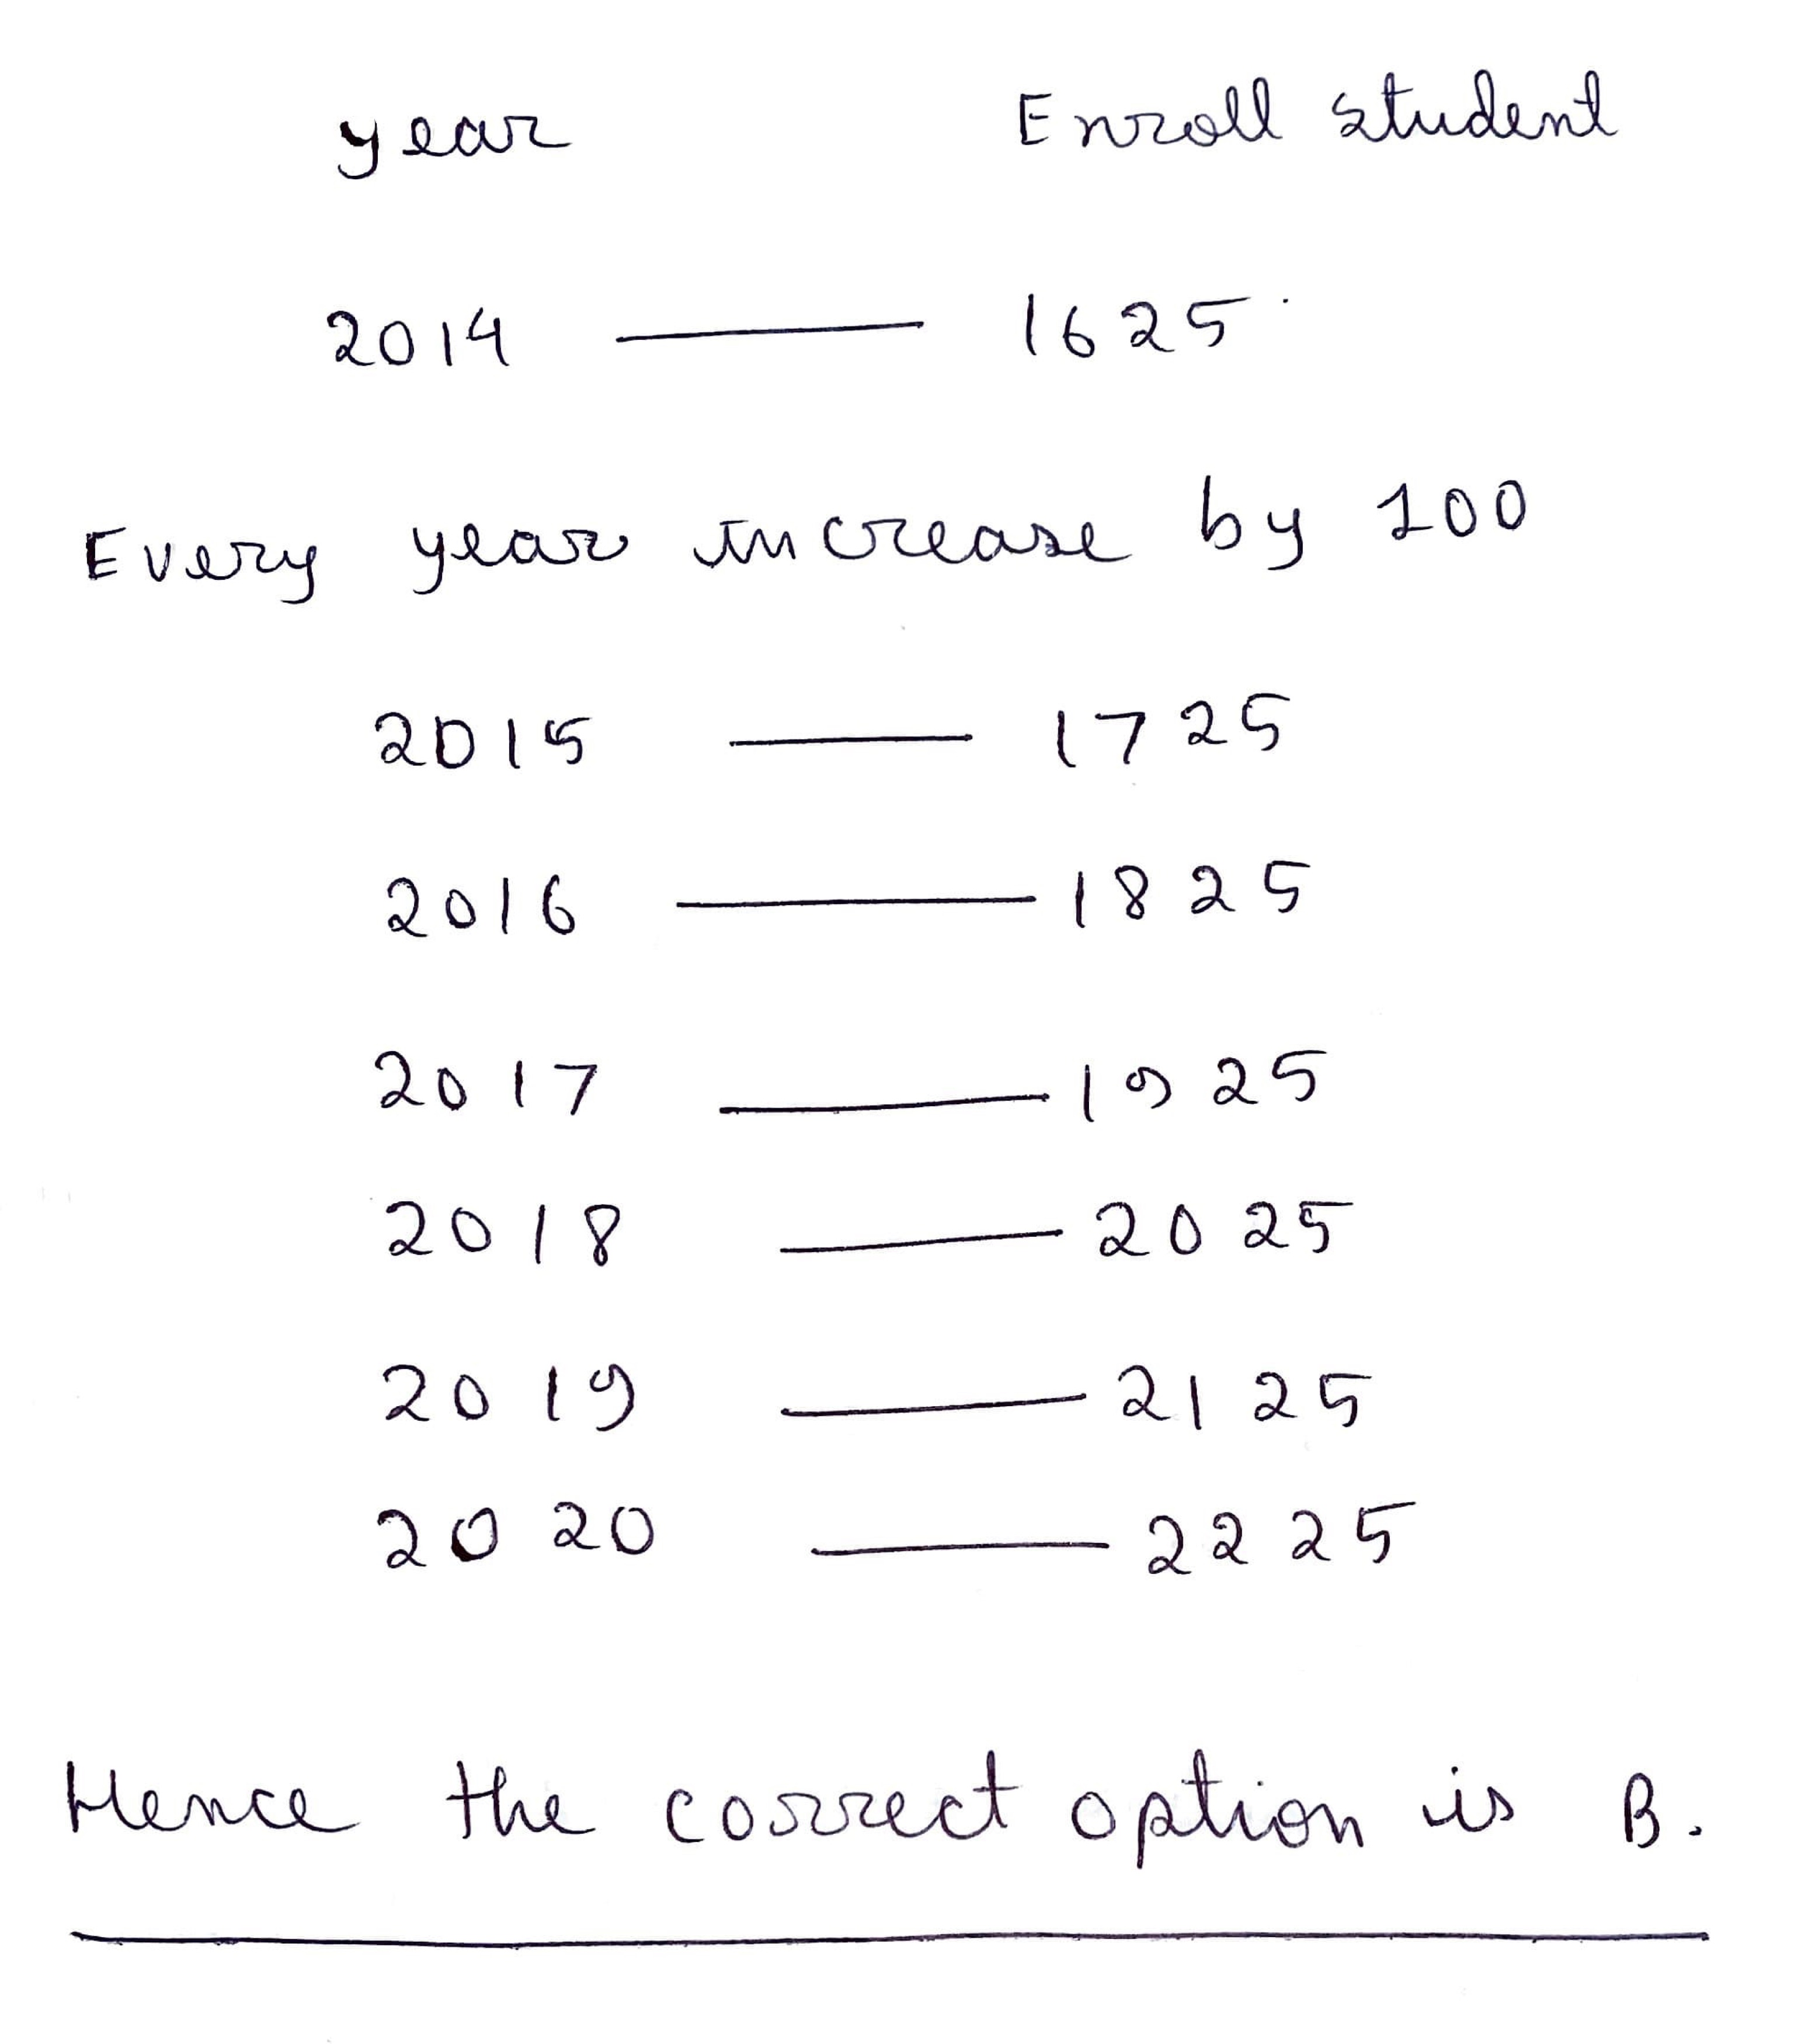 year Enroll student
2014 — 1625
Every year increase by 100
2015 — 1725
2016 — 1825
2017 — 1925
2018 — 2025
2019 — 2125
2020 — 2225
Hence the correct option is B.